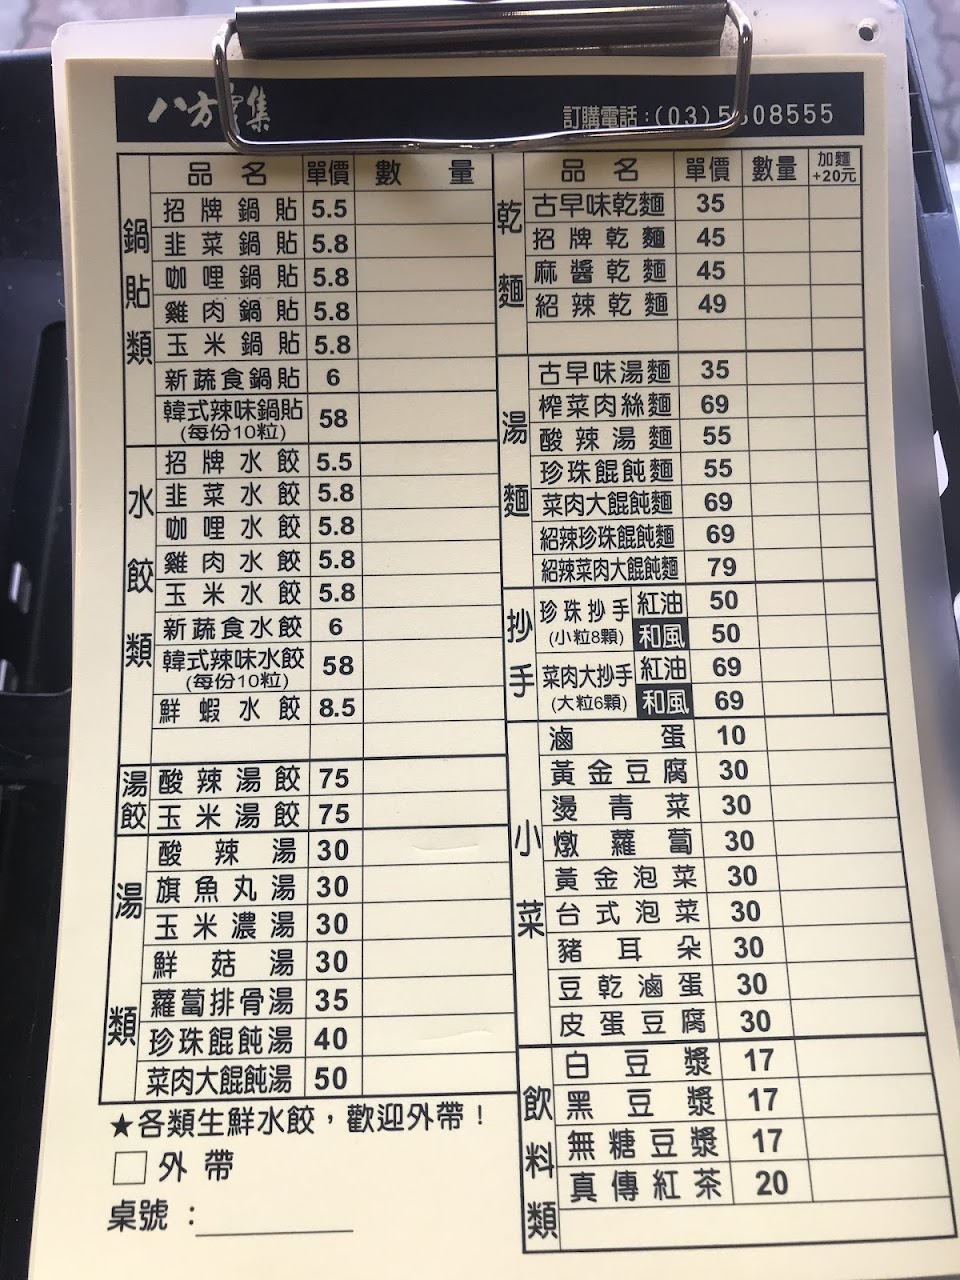 八方雲集
訂購電話:(03)5608555
品名 單價 數量
鍋貼類
招牌鍋貼 5.5
韭菜鍋貼 5.8
咖哩鍋貼 5.8
雞肉鍋貼 5.8
玉米鍋貼 5.8
新蔬食鍋貼 6
韓式辣味鍋貼 58
(每份10粒)
水餃類
招牌水餃 5.5
韭菜水餃 5.8
咖哩水餃 5.8
雞肉水餃 5.8
玉米水餃 5.8
新蔬食水餃 6
韓式辣味水餃 58
(每份10粒)
鮮蝦水餃 8.5
湯餃
酸辣湯餃 75
玉米湯餃 75
湯類
酸辣湯 30
旗魚丸湯 30
玉米濃湯 30
鮮菇湯 30
蘿蔔排骨湯 35
珍珠餛飩湯 40
菜肉大餛飩湯 50
★各類生鮮水餃，歡迎外帶！
□外帶
桌號：
品名 單價 數量 加麵+20元
乾麵
古早味乾麵 35
招牌乾麵 45
麻醬乾麵 45
紹辣乾麵 49
湯麵
古早味湯麵 35
榨菜肉絲麵 69
酸辣湯麵 55
珍珠餛飩麵 55
菜肉大餛飩麵 69
紹辣珍珠餛飩麵 69
紹辣菜肉大餛飩麵 79
抄手
珍珠抄手 紅油 50
(小粒8顆) 和風 50
菜肉大抄手 紅油 69
(大粒6顆) 和風 69
小菜
滷蛋 10
黃金豆腐 30
燙青菜 30
燉蘿蔔 30
黃金泡菜 30
台式泡菜 30
豬耳朵 30
豆乾滷蛋 30
皮蛋豆腐 30
飲料類
白豆漿 17
黑豆漿 17
無糖豆漿 17
真傳紅茶 20